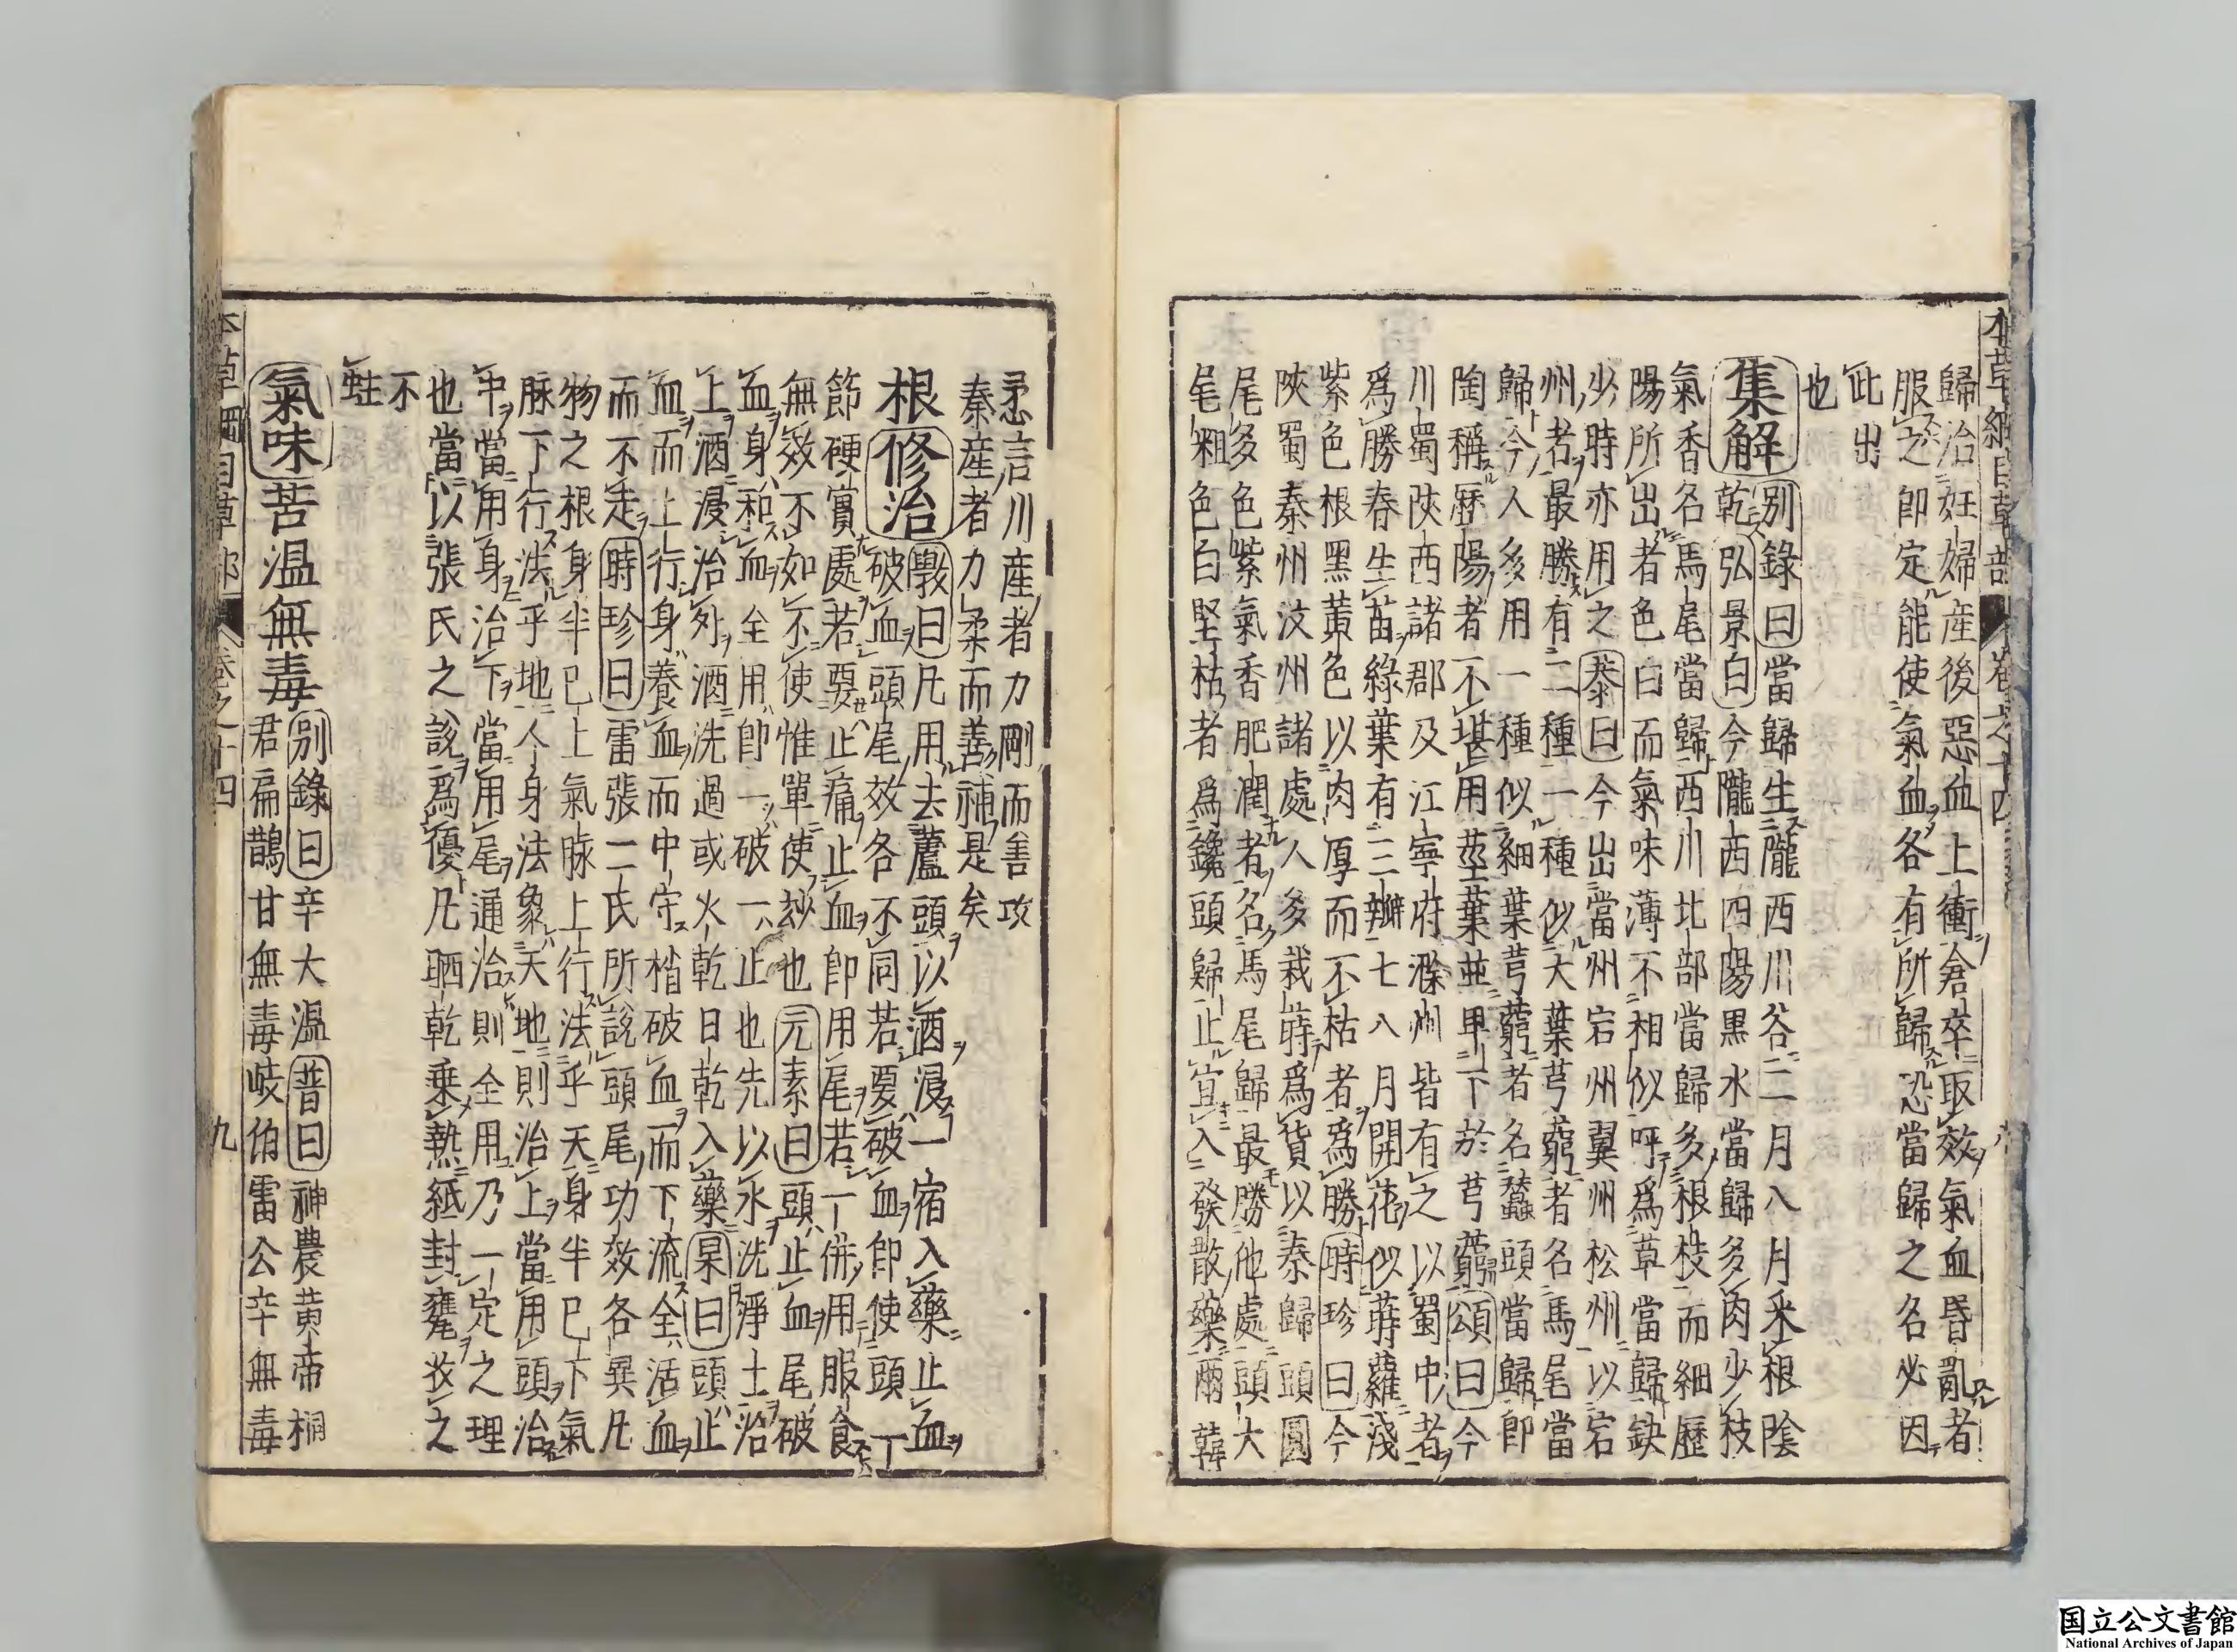 本草綱目草部 卷之十四
歸治妊婦產後惡血上衝倉卒取效氣血昏亂者
服之卽定能使氣血各有所歸恐當歸之名必因
此出
也
集解 別錄曰當歸生隴西川谷二月八月采根陰
乾弘景曰今隴西四陽黑水當歸多肉少枝
氣香名馬尾當歸西川北部當歸多根枝而細歷
陽所出者色白而氣味薄不相似呼爲草當歸缺
少時亦用之恭曰今出當州宕州翼州松州以宕
州者最勝有二種一種似大葉芎藭者名馬尾當
歸今人多用一種似細葉芎藭者名蠶頭當歸卽
陶稱歷陽者不堪用莖葉並卑下於芎藭頌曰今
川蜀陝西諸郡及江寧府滁州皆有之以蜀中者
爲勝春生苗綠葉有三瓣七八月開花似蒔蘿淺
紫色根黑黃色以肉厚而不枯者爲勝時珍曰今
陝蜀秦州汶州諸處人多栽蒔爲貨以秦歸頭圓
尾多色紫氣香肥潤者名馬尾歸最勝他處頭大
尾粗色白堅枯者爲鑱頭歸止宜入發散藥爾韓
𢘆言川產者力剛而善攻
秦產者力柔而善補是矣
根 修治 斅曰凡用去蘆頭以酒浸一宿入藥止血
破血頭尾效各不同若要破血卽使頭一
節硬實處若要止痛止血卽用尾若一併用服食
無效不如不使惟單使玅也元素曰頭止血尾破
血身和血全用卽一破一止也先以水洗淨土治
上酒浸治外酒洗過或火乾日乾入藥杲曰頭止
血而上行身養血而中守梢破血而下流全活血
而不走時珍曰雷張二氏所說頭尾功效各異凡
物之根身半已上氣脉上行法乎天身半已下氣
脉下行法乎地人身法象天地則治上當用頭治
中當用身治下當用尾通治則全用乃一定之理
也當以張氏之說爲優凡晒乾乗熱紙封甕收之
不
蛀
氣味 苦溫無毒 別錄曰辛大溫普曰神農黃帝桐
君扁鵲甘無毒岐伯雷公辛無毒
本草綱目草部 卷之十四 九
国立公文書館
National Archives of Japan